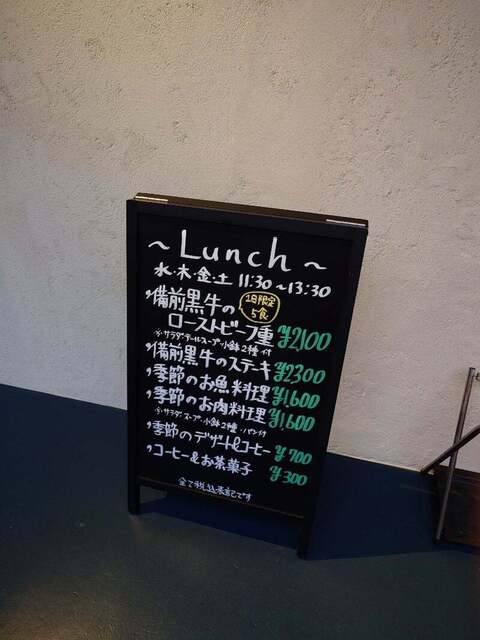 ~ Lunch ~
水・木・金・土 11:30~13:30
備前黒牛の 1日限定
5食
ローストビーフ重 ¥2,100
サラダ・テールスープ・小鉢2種 付
備前黒牛のステーキ ¥2300
季節のお魚料理 ¥1,600
季節のお肉料理 ¥1,600
サラダ・スープ・小鉢2種・パン付
季節のデザート&コーヒー ¥700
コーヒー&お茶菓子 ¥300
全て税込表記です